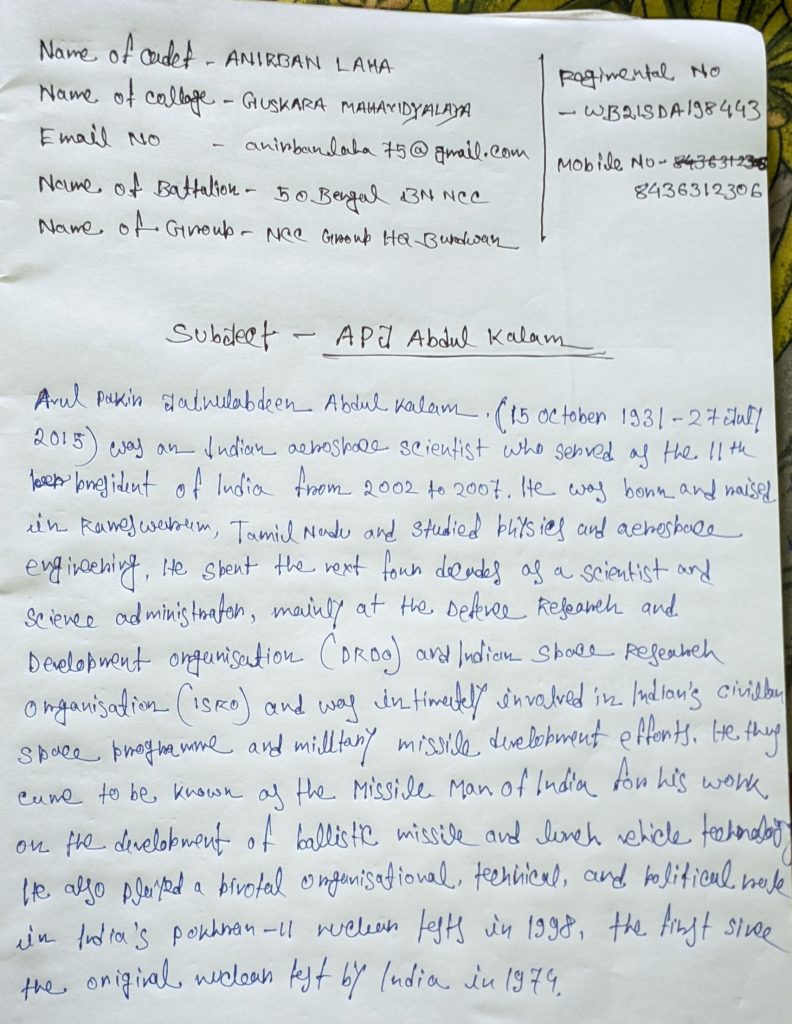 Name of cadet - ANIRBAN LAHA
Name of collage - GUSKARA MAHAVIDYALAYA
Email No - anirbanlaha75@gmail.com
Name of Battalion - 50 Bengal BN NCC
Name of Group - NCC Group HQ Burdwan
Regimental No
- WB21SDA198443
Mobile No - 8436312306
8436312306
Subject - APJ Abdul Kalam
Avul Pakir Jainulabdeen Abdul Kalam. (15 October 1931 - 27 July
2015) was an Indian aerospace scientist who served as the 11th
president of India from 2002 to 2007. He was born and raised
in Rameswaram, Tamil Nadu and studied physics and aerospace
engineering, He spent the next four decades as a scientist and
science administrator, mainly at the Defence Research and
Development organisation (DRDO) and Indian Space Research
organisation (ISRO) and was intimately involved in Indian's civillian
space programme and military missile development efforts. He thus
came to be known as the Missile Man of India for his work
on the development of ballistic missile and lunch vehicle technology
He also played a pivotal organisational, technical, and political role
in India's Pokhran-II nuclear tests in 1998, the first since
the original nuclear test by India in 1974.